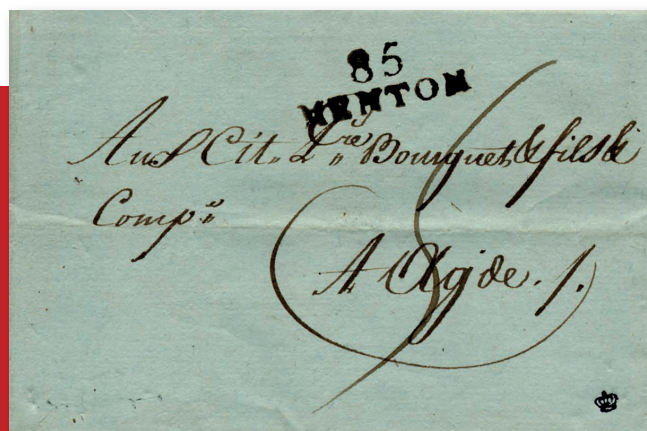 85
MENTON
Aux Cit. Bouquet & fils &
Comp.e
A Agde.